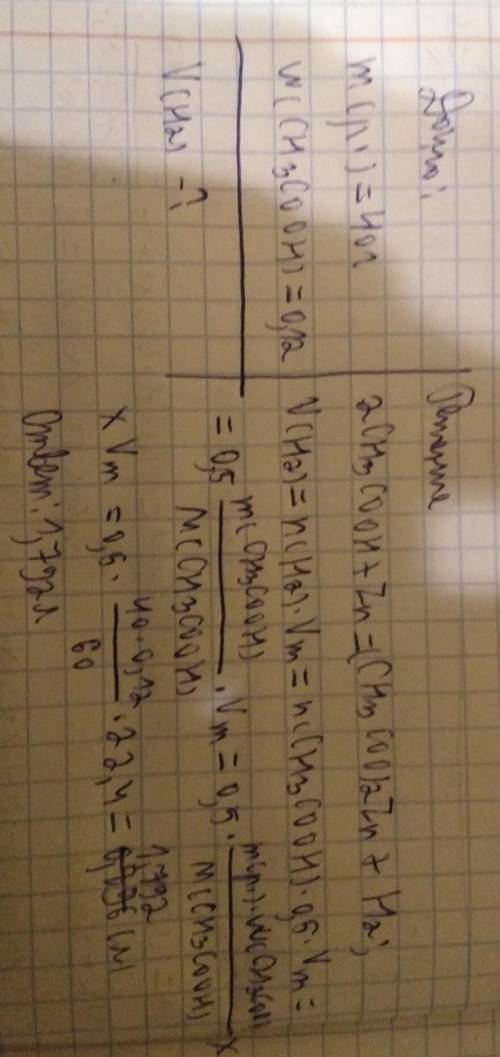 Дано:
m(р.) = 40г
w(CH3COOH) = 0,12
V(H2) - ?
Решение
2CH3COOH + Zn = (CH3COO)2Zn + H2;
V(H2) = n(H2) · Vm = n(CH3COOH) · 0,5 · Vm =
= 0,5 · m(CH3COOH) / M(CH3COOH) · Vm = 0,5 · m(р.) · w(CH3COOH) / M(CH3COOH) ×
× Vm = 0,5 · 40 · 0,12 / 60 · 22,4 = 1,792 (л)
Ответ: 1,792л